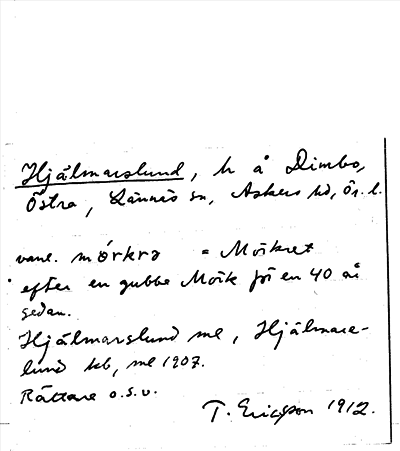 Hjälmarslund, h å Dimbo,
Östra, Lännäs sn, Askers hd, Ör. l.
vanl. mórkrə = Mörkret
efter en gubbe Mörk för en 40 år
sedan.
Hjälmarslund ml, Hjälmars-
lund kb, ml 1907.
Rättare o.s.v.
T. Ericsson 1912.